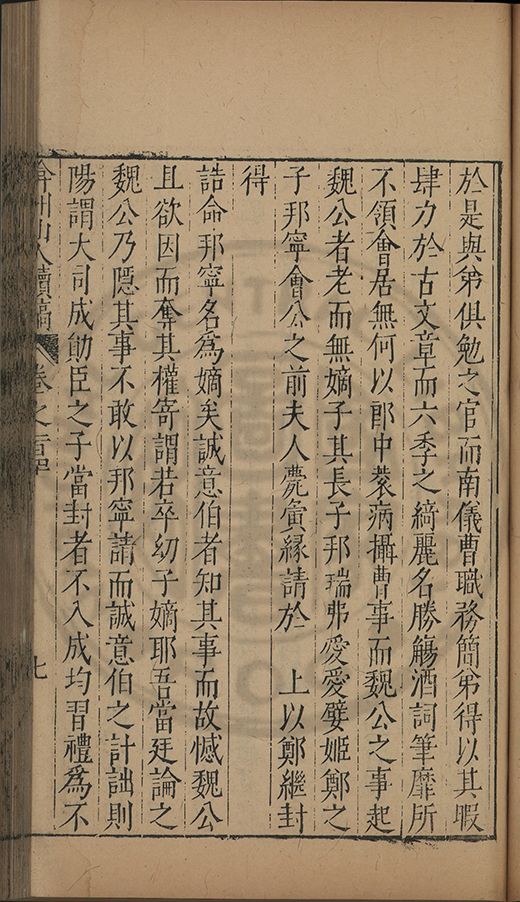 於是與弟俱勉之官而南儀曹職務簡弟得以其暇
肆力於古文章而六季之綺麗名勝觴酒詞筆靡所
不領會居無何以郎中蒙病攝曹事而魏公之事起
魏公者老而無嫡子其長子邦瑞弗愛愛嬖姬鄭之
子邦寧會公之前夫人薨夤緣請於 上以鄭繼封
得
誥命邦寧名為嫡矣誠意伯者知其事而故憾魏公
且欲因而奪其權寄謂若卒幼子嫡耶吾當廷論之
魏公乃隱其事不敢以邦寧請而誠意伯之計詘則
陽謂大司成勛臣之子當封者不入成均習禮為不
弇州山人續稿 卷之一百四十 七